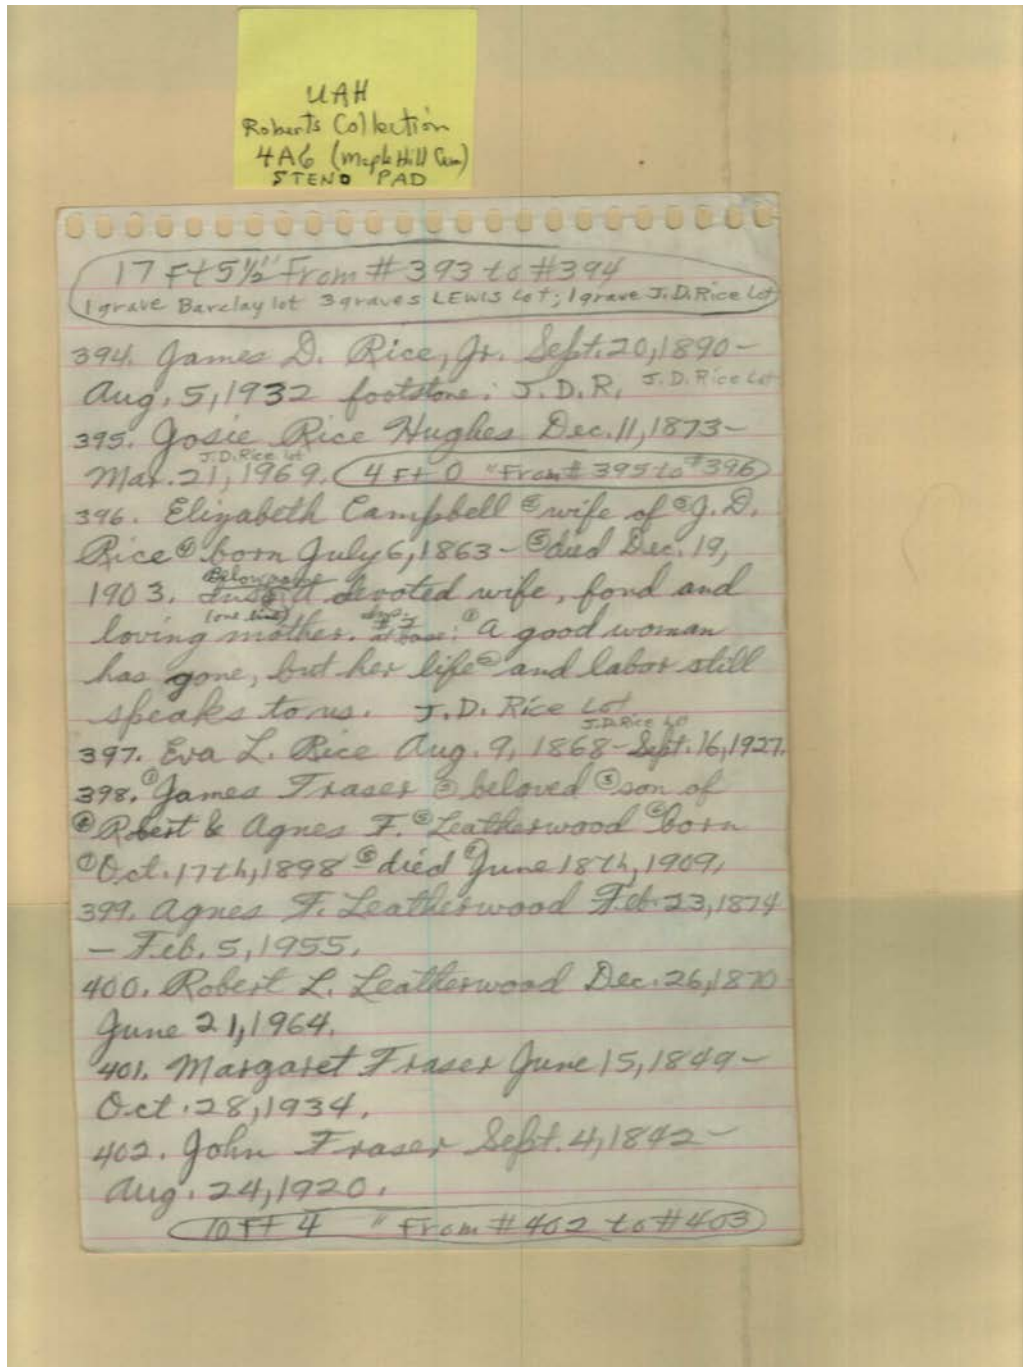 UAH
Roberts Collection
4A6 (Maple Hill Cem)
STENO PAD
17 Ft 5½" From #393 to #394
1 grave Barclay lot 3 graves LEWIS Lot; 1 grave J.D. Rice Lot
394. James D. Rice, Jr. Sept. 20, 1890 –
Aug. 5, 1932 footstone: J.D.R. J.D. Rice Lot
395. Josie Rice Hughes Dec. 11, 1873 –
J.D. Rice lot
Mar. 21, 1969. 4 Ft 0 " From # 395 to #396
396. Elizabeth Campbell ② wife of ③ J. D.
Rice ④ born July 6, 1863 – ⑤ died Dec. 19,
Below
1903. A devoted wife, fond and
(one line)
loving mother. at base: ① A good woman
has gone, but her life ② and labor still
speaks to us. J.D. Rice Lot
J.D. Rice Lot
397. Eva L. Rice Aug. 9, 1868 – Sept. 16, 1927.
398. ① James Fraser ② beloved ③ son of
④ Robert & Agnes F. ⑤ Leatherwood ⑥ born
⑦ Oct. 17th, 1898 ⑧ died ⑨ June 18th, 1909.
399. Agnes F. Leatherwood Feb. 23, 1874
– Feb. 5, 1955.
400. Robert L. Leatherwood Dec. 26, 1870 –
June 21, 1964.
401. Margaret Fraser June 15, 1849 –
Oct. 28, 1934.
402. John Fraser Sept. 4, 1842 –
Aug. 24, 1920.
10 Ft 4 " From #402 to #403